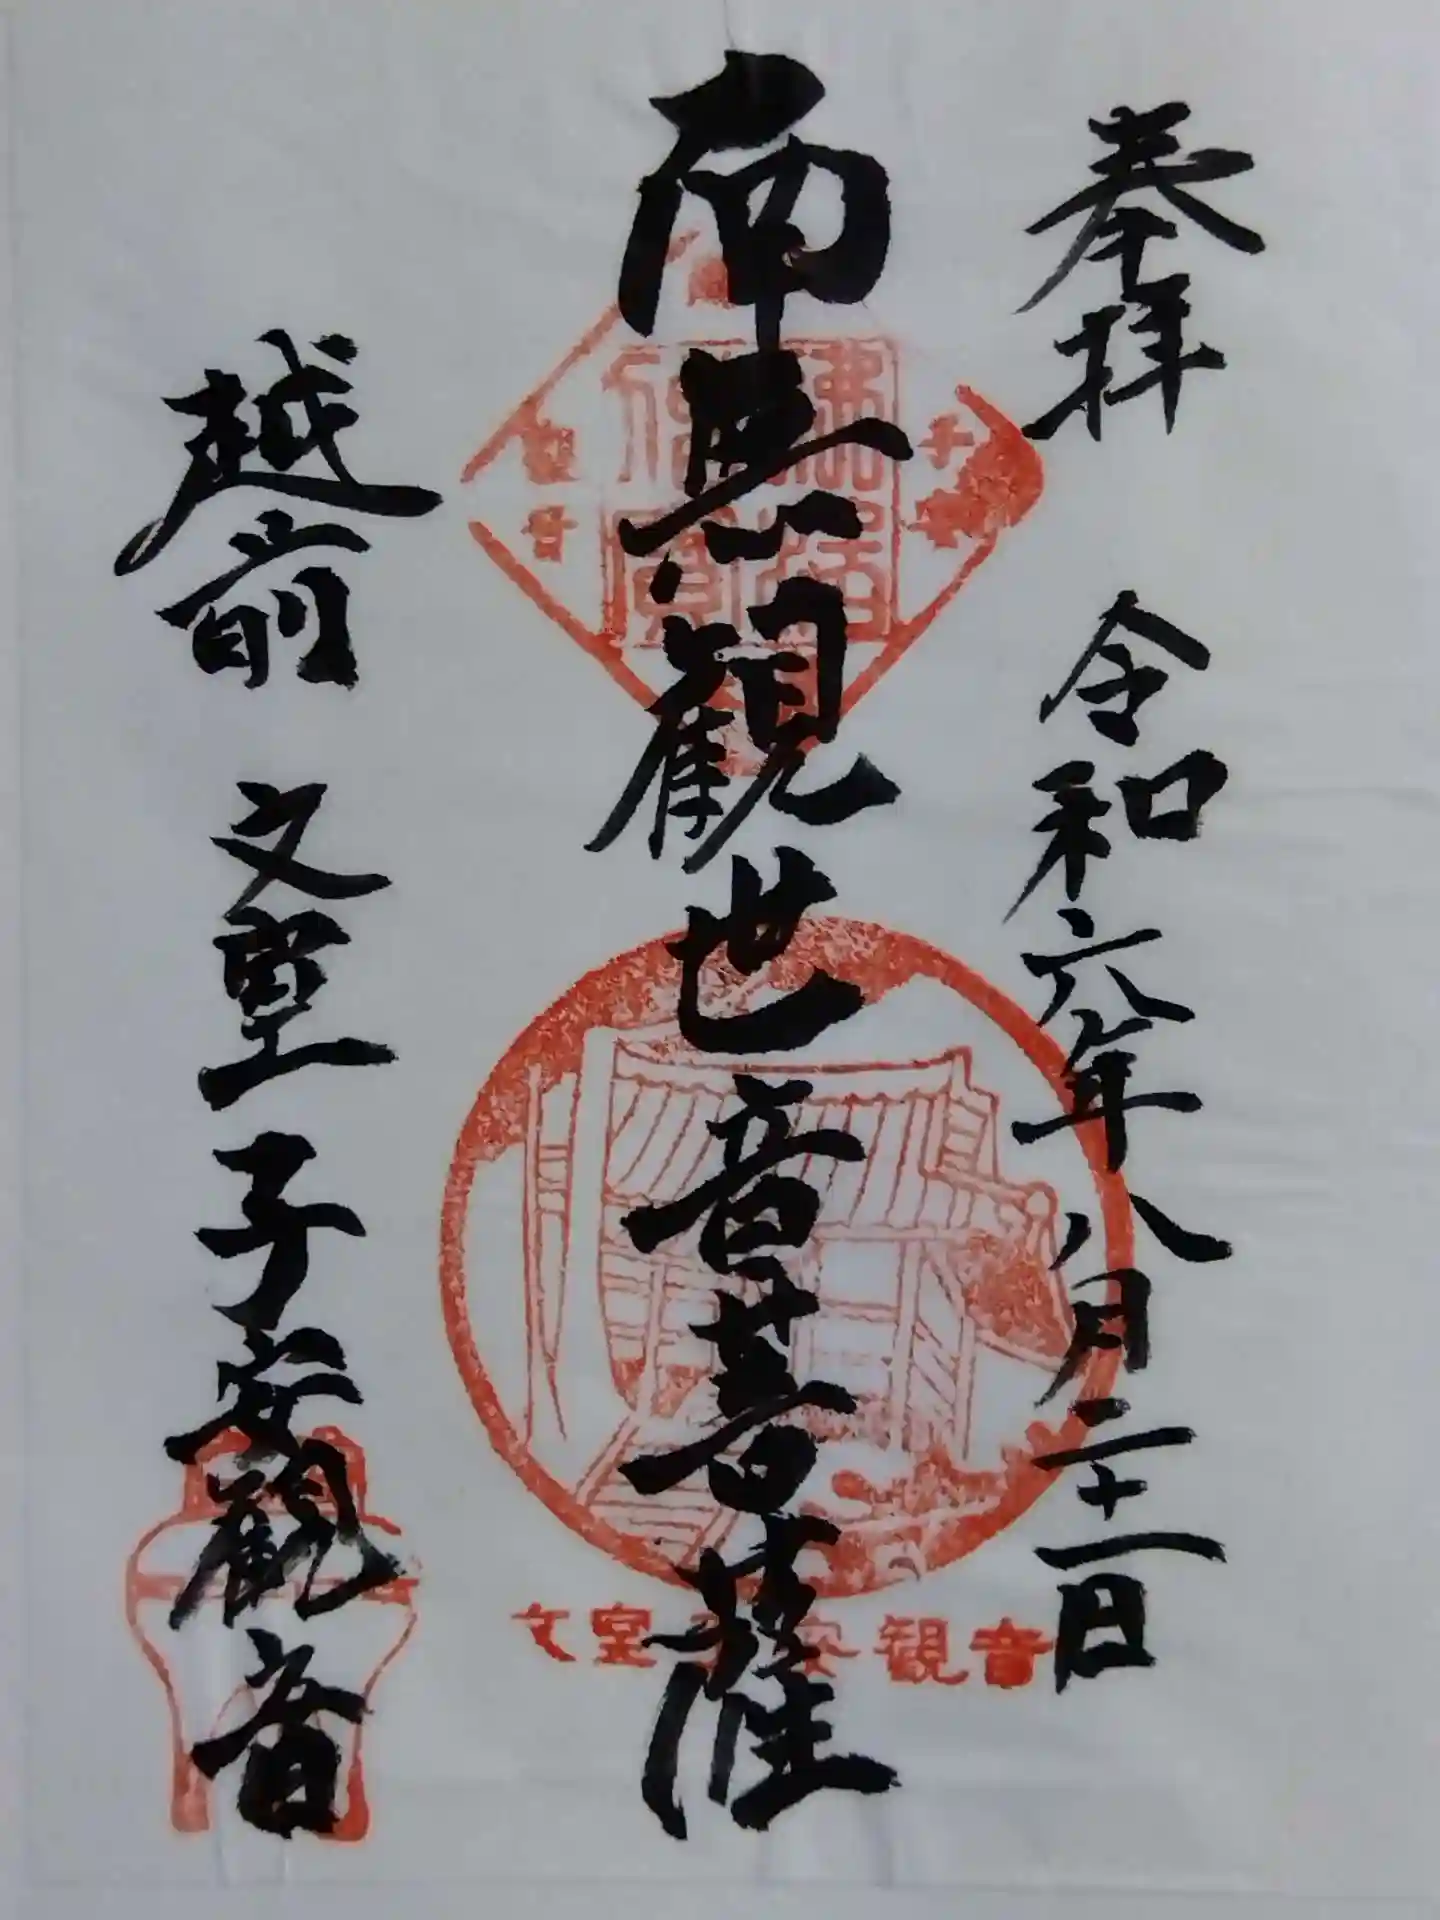 奉拝 令和六年八月二十一日
南無観世音菩薩
越前 文室 子安観音
佛法僧寳
子安
観音
文室子安観音